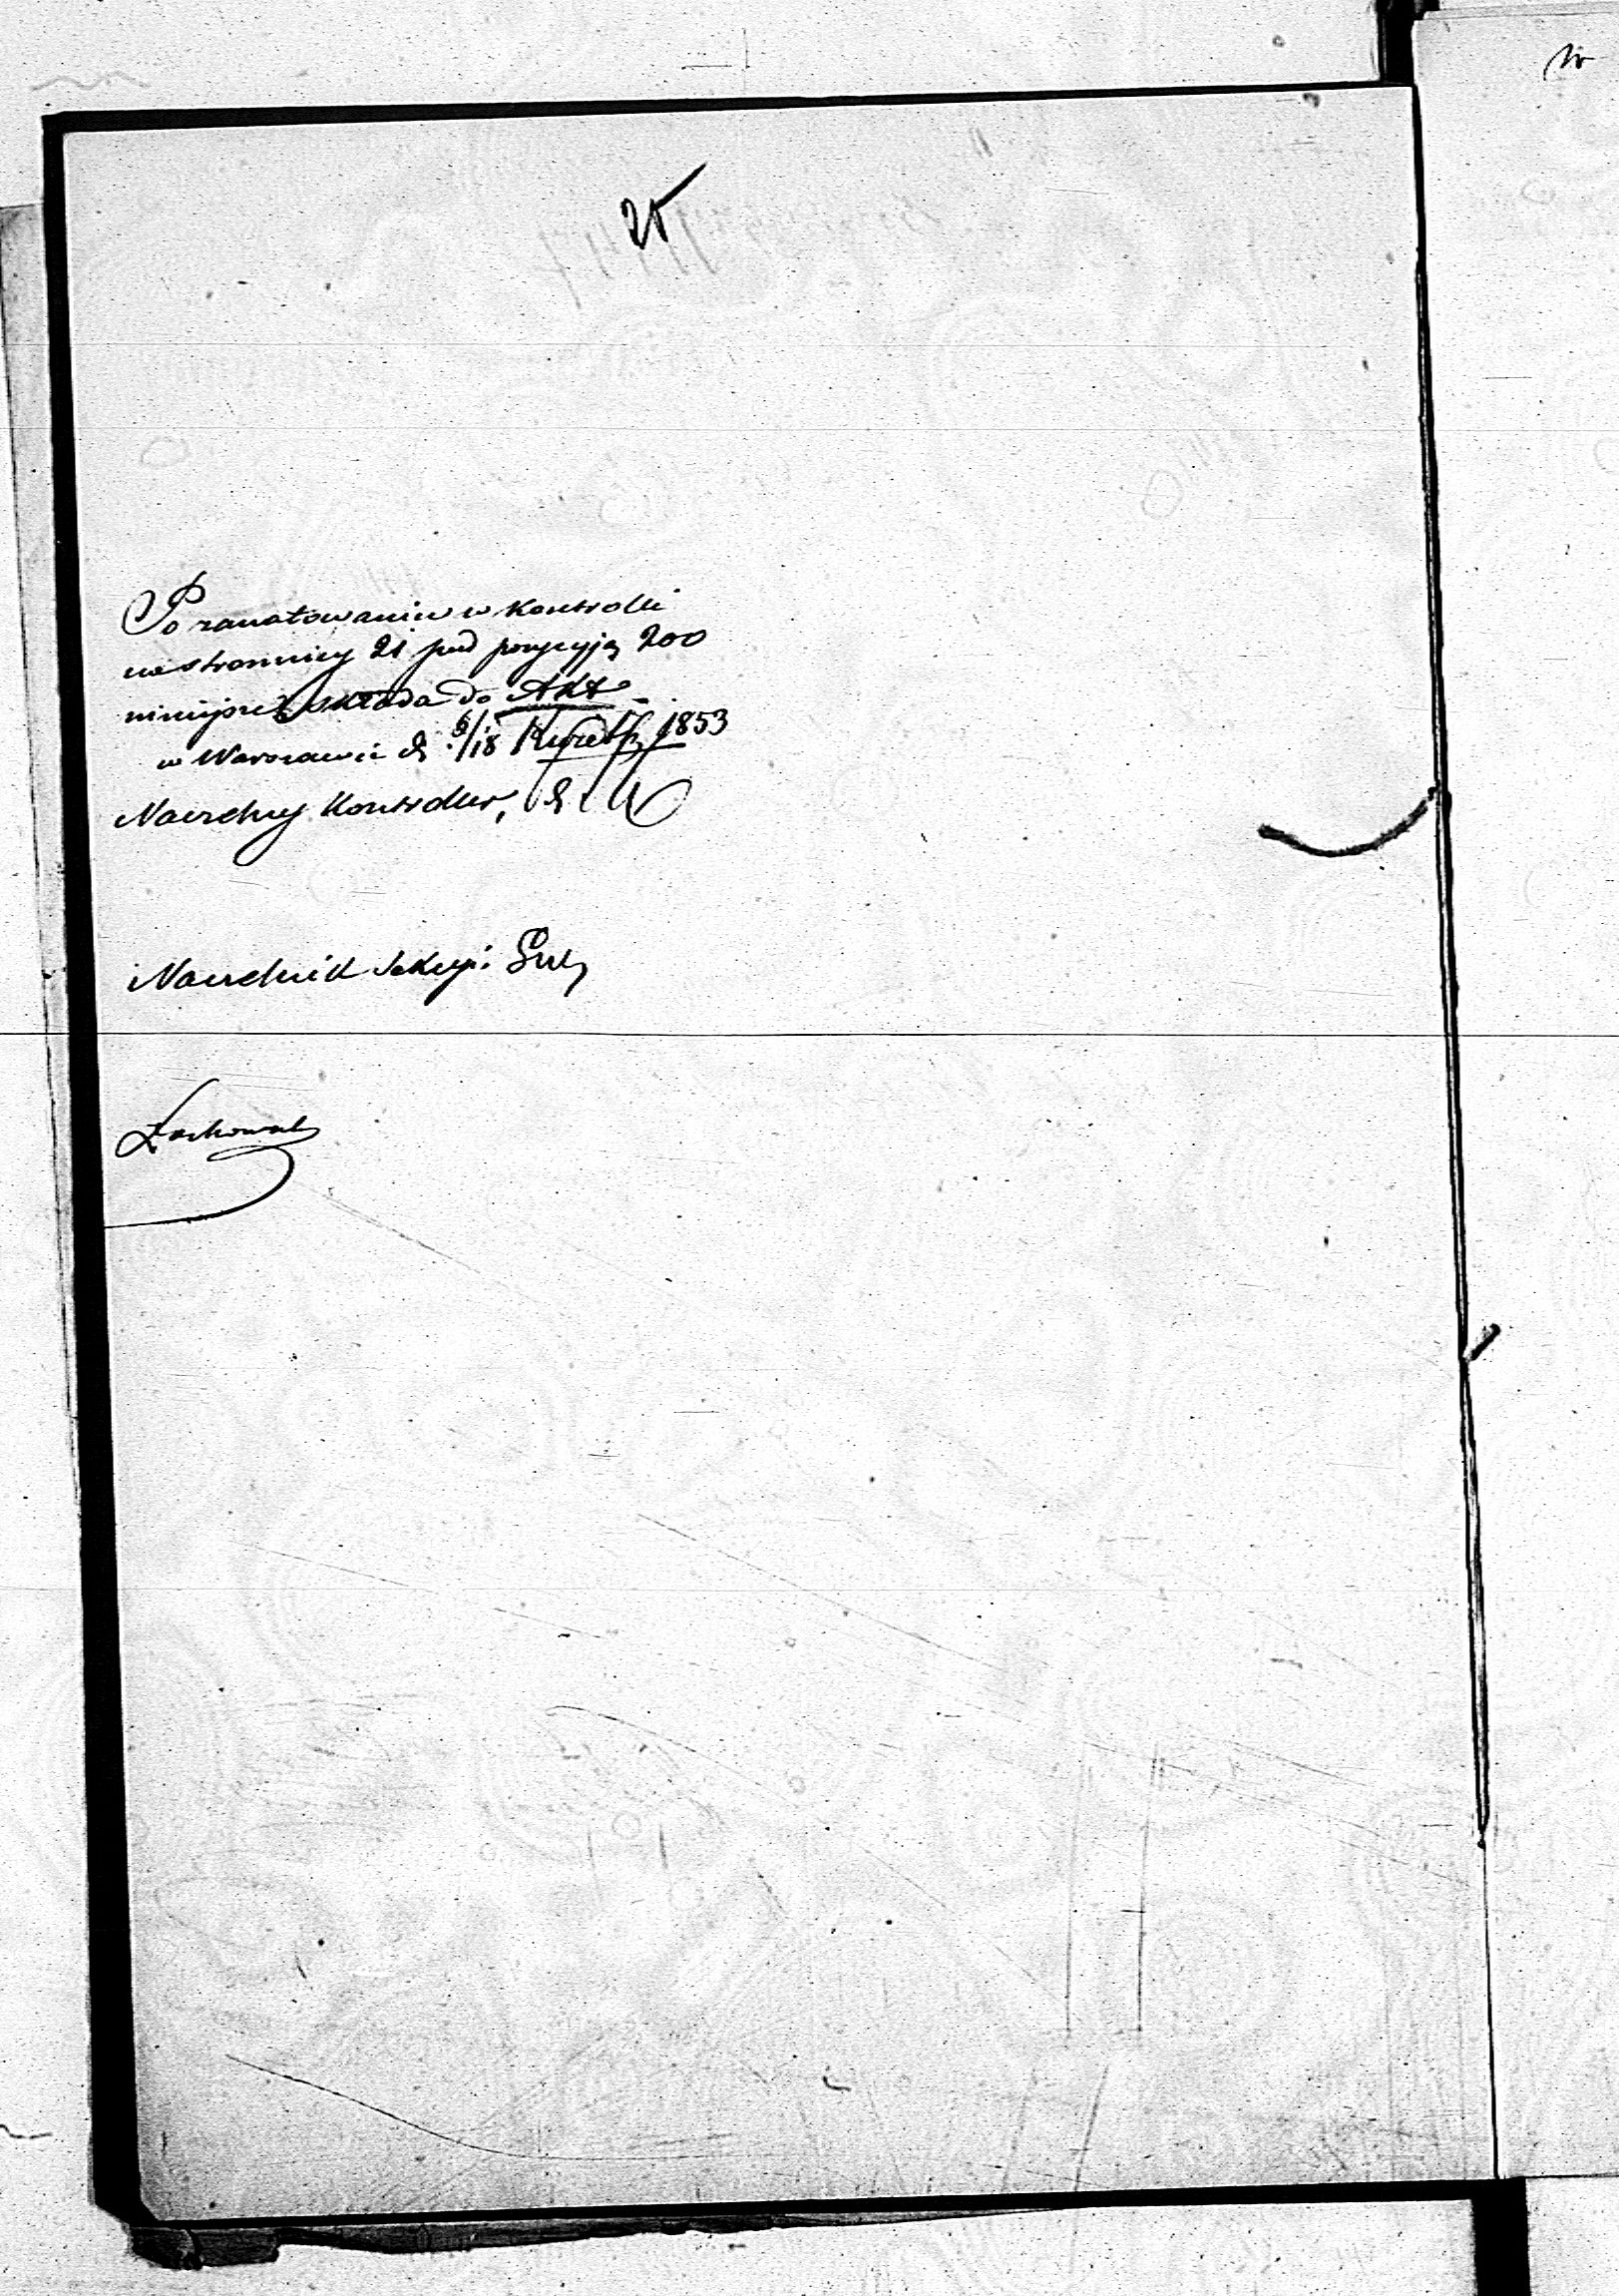 25
Po zanotowaniu w Kontrolli
na stronnicy 21 pod pozycyją 200
niniejsze składa do Akt
w Warszawie d. 6/18 1853
Naczelny Kontroller,
Naczelnik Sekcyi